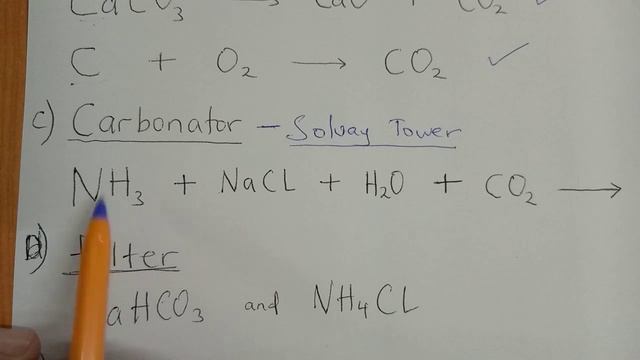 CaCO₃ → CaO + CO₂ ✓
C + O₂ → CO₂ ✓
c) Carbonator - Solvay Tower
NH₃ + NaCl + H₂O + CO₂ →
D) Filter
aHCO₃ and NH₄Cl